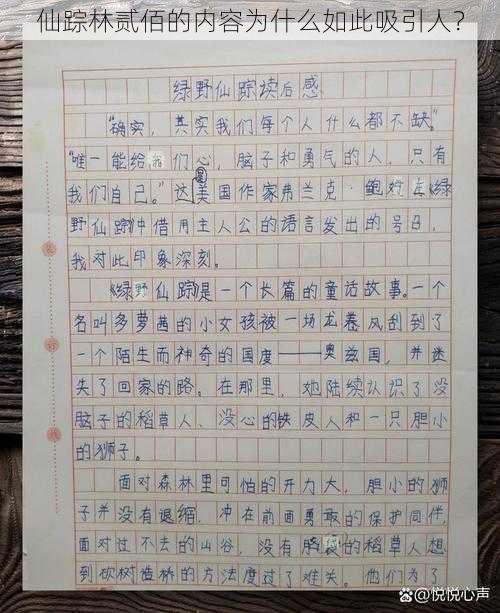 仙踪林贰佰的内容为什么如此吸引人?
绿野仙踪读后感
"确实,其实我们每个人什么都不缺。"
"唯一能给我们心,脑子和勇气的人,只有
我们自己。"这是美国作家弗兰克·鲍姆在《绿
野仙踪》中借用主人公的语言发出的号召,
我对此印象深刻。
《绿野仙踪》是一个长篇的童话故事。一个
名叫多萝茜的小女孩被一场龙卷风刮到了
一个陌生而神奇的国度——奥兹国,并迷
失了回家的路。在那里,她陆续认识了没
脑子的稻草人、没心的铁皮人和一只胆小
的狮子。
面对森林里可怕的开力大,胆小的狮
子并没有退缩,冲在前面勇敢的保护同伴,
面对过不去的山谷,没有脑袋的稻草人想
到砍树造桥的方法度过了难关。他们为了
@悦悦心声